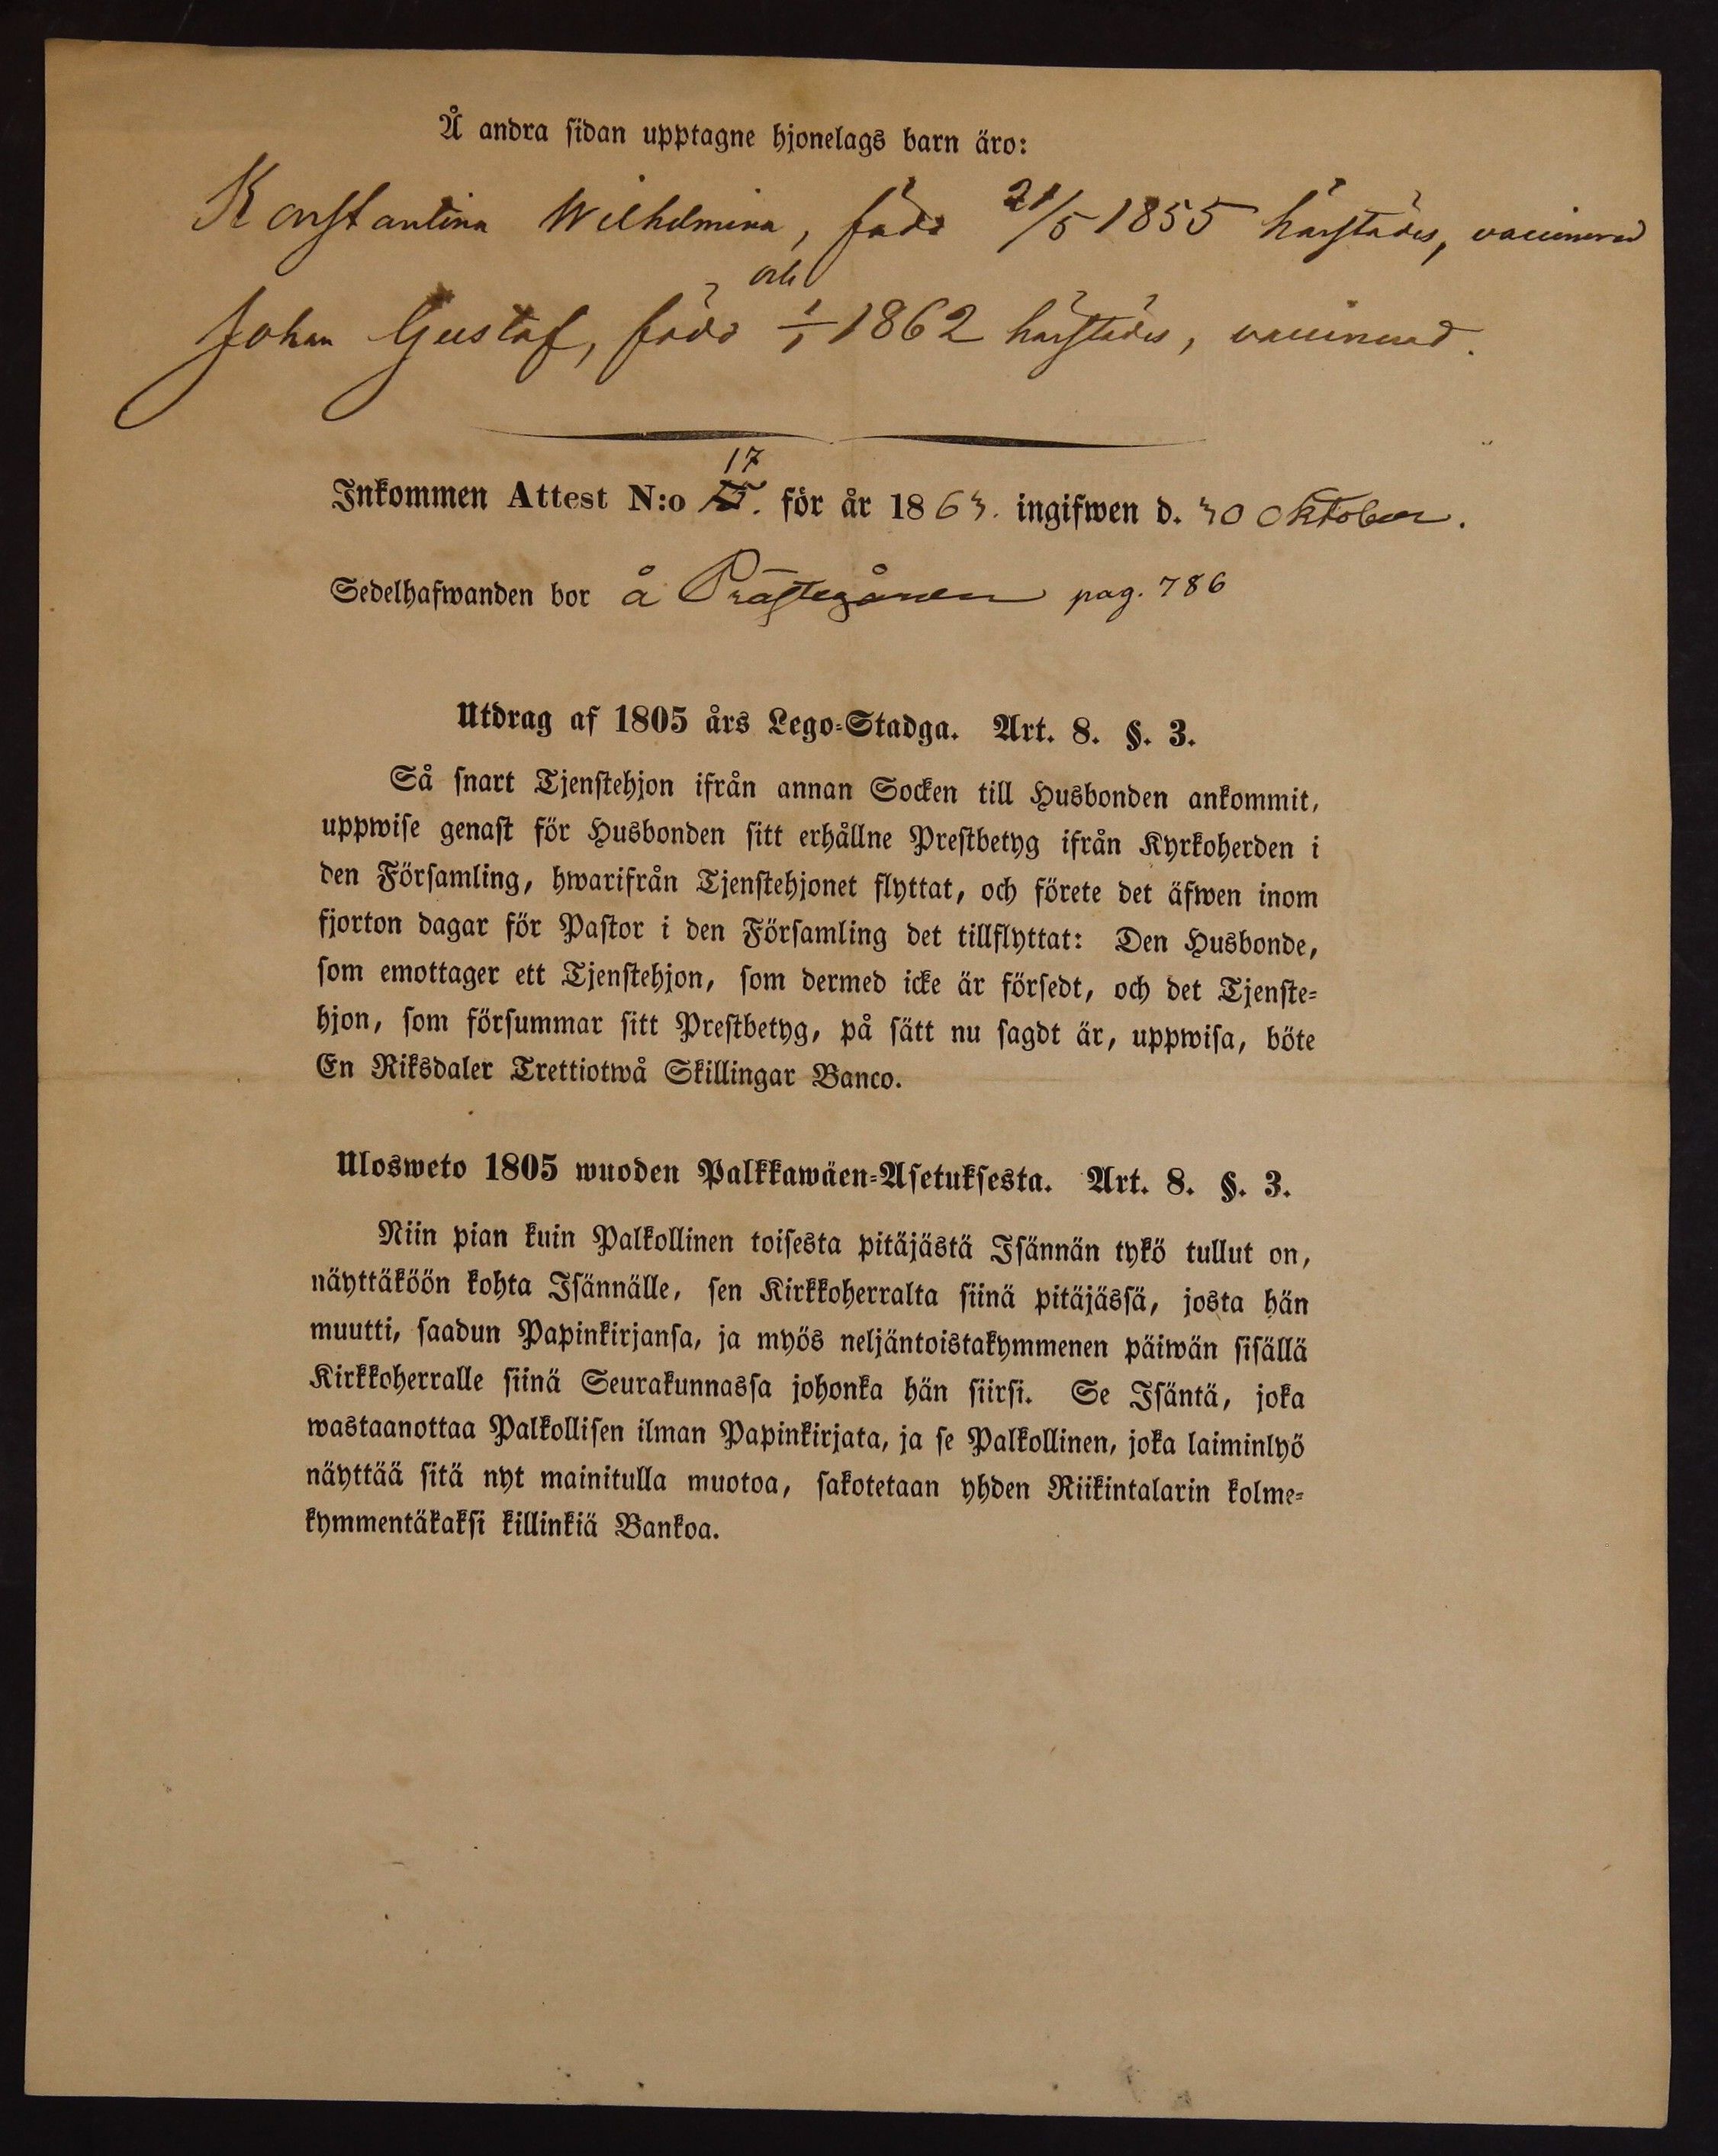 Å andra sidan upptagne hjonelags barn äro:
Konstantina Wilhelmina, född 21/5 1855 härstädes, vaccinerad
och
Johan Gustaf, född 1/1 1862 härstädes, vaccinerad.
17
Inkommen Attest N:o för år 1863. ingifwen d. 30 Oktober.
Sedelhafwanden bor å Prästegården pag. 786
Utdrag af 1805 års Lego-Stadga. Art. 8. §. 3.
Så snart Tjenstehjon ifrån annan Socken till Husbonden ankommit,
uppwise genast för Husbonden sitt erhållne Prestbetyg ifrån Kyrkoherden i
den Församling, hwarifrån Tjenstehjonet flyttat, och förete det äfwen inom
fjorton dagar för Pastor i den Församling det tillflyttat: Den Husbonde,
som emottager ett Tjenstehjon, som dermed icke är försedt, och det Tjenste-
hjon, som försummar sitt Prestbetyg, på sätt nu sagdt är, uppwisa, böte
En Riksdaler Trettiotwå Skillingar Banco.
Ulosweto 1805 wuoden Palkkawäen-Asetuksesta. Art. 8. §. 3.
Niin pian kuin Palkollinen toisesta pitäjästä Isännän tykö tullut on,
näyttäköön kohta Isännälle, sen Kirkkoherralta siinä pitäjässä, josta hän
muutti, saadun Papinkirjansa, ja myös neljäntoistakymmenen päiwän sisällä
Kirkkoherralle siinä Seurakunnassa johonka hän siirsi. Se Isäntä, joka
wastaanottaa Palkollisen ilman Papinkirjata, ja se Palkollinen, joka laiminlyö
näyttää sitä nyt mainitulla muotoa, sakotetaan yhden Riikintalarin kolme-
kymmentäkaksi killinkiä Bankoa.